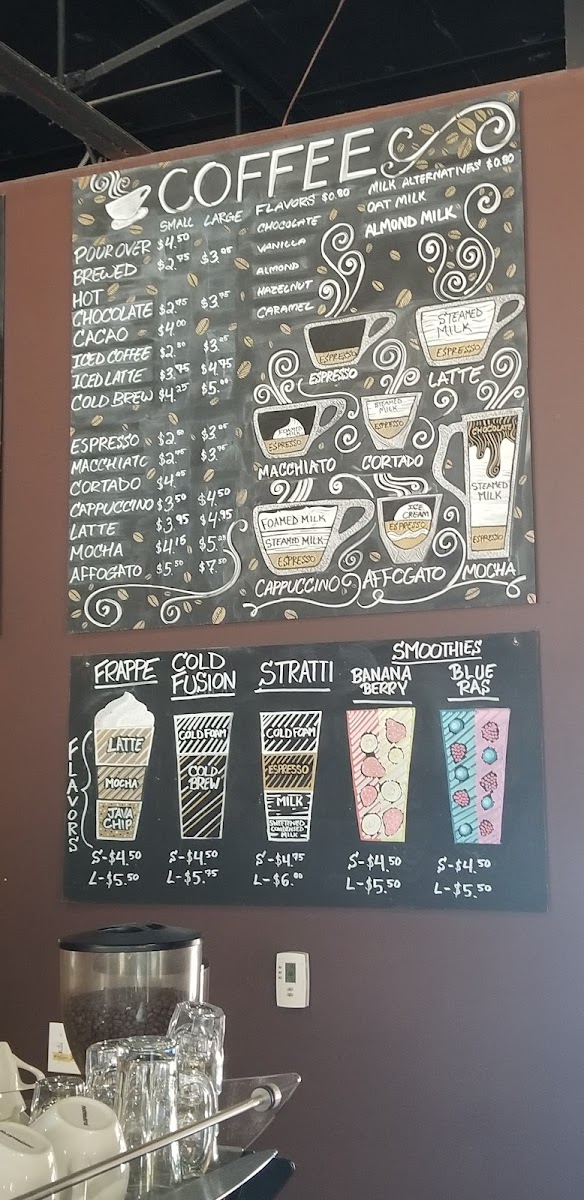 COFFEE
SMALL LARGE
POUR OVER $4.50
BREWED $2.75 $3.05
HOT
CHOCOLATE $2.75 $3.75
CACAO $4.00
ICED COFFEE
ICED LATTE $3.75 $4.75
COLD BREW $4.25 $5.00
ESPRESSO
MACCHIATO
CORTADO
CAPPUCCINO $3.50 $4.50
LATTE $3.95 $4.95
MOCHA $4.15
AFFOGATO $5.50 $7.50
FLAVORS $0.80
CHOCOLATE
VANILLA
ALMOND
HAZELNUT
CARAMEL
MILK ALTERNATIVES $0.80
OAT MILK
ALMOND MILK
ESPRESSO
ESPRESSO
STEAMED
MILK
ESPRESSO
LATTE
ESPRESSO
MACCHIATO
STEAMED
MILK
ESPRESSO
CORTADO
FOAMED MILK
STEAMED MILK
ESPRESSO
CAPPUCCINO
ICE
CREAM
ESPRESSO
AFFOGATO
CHOCOLATE
STEAMED
MILK
ESPRESSO
MOCHA
FRAPPE
FLAVORS
LATTE
MOCHA
JAVA
CHIP
S-$4.50
L-$5.50
COLD
FUSION
COLD FOAM
COLD
BREW
S-$4.50
L-$5.75
STRATTI
COLD FOAM
ESPRESSO
MILK
SWEETENED
CONDENSED
MILK
S-$4.75
L-$6.00
SMOOTHIES
BANANA
BERRY
S-$4.50
L-$5.50
BLUE
RAS
S-$4.50
L-$5.50